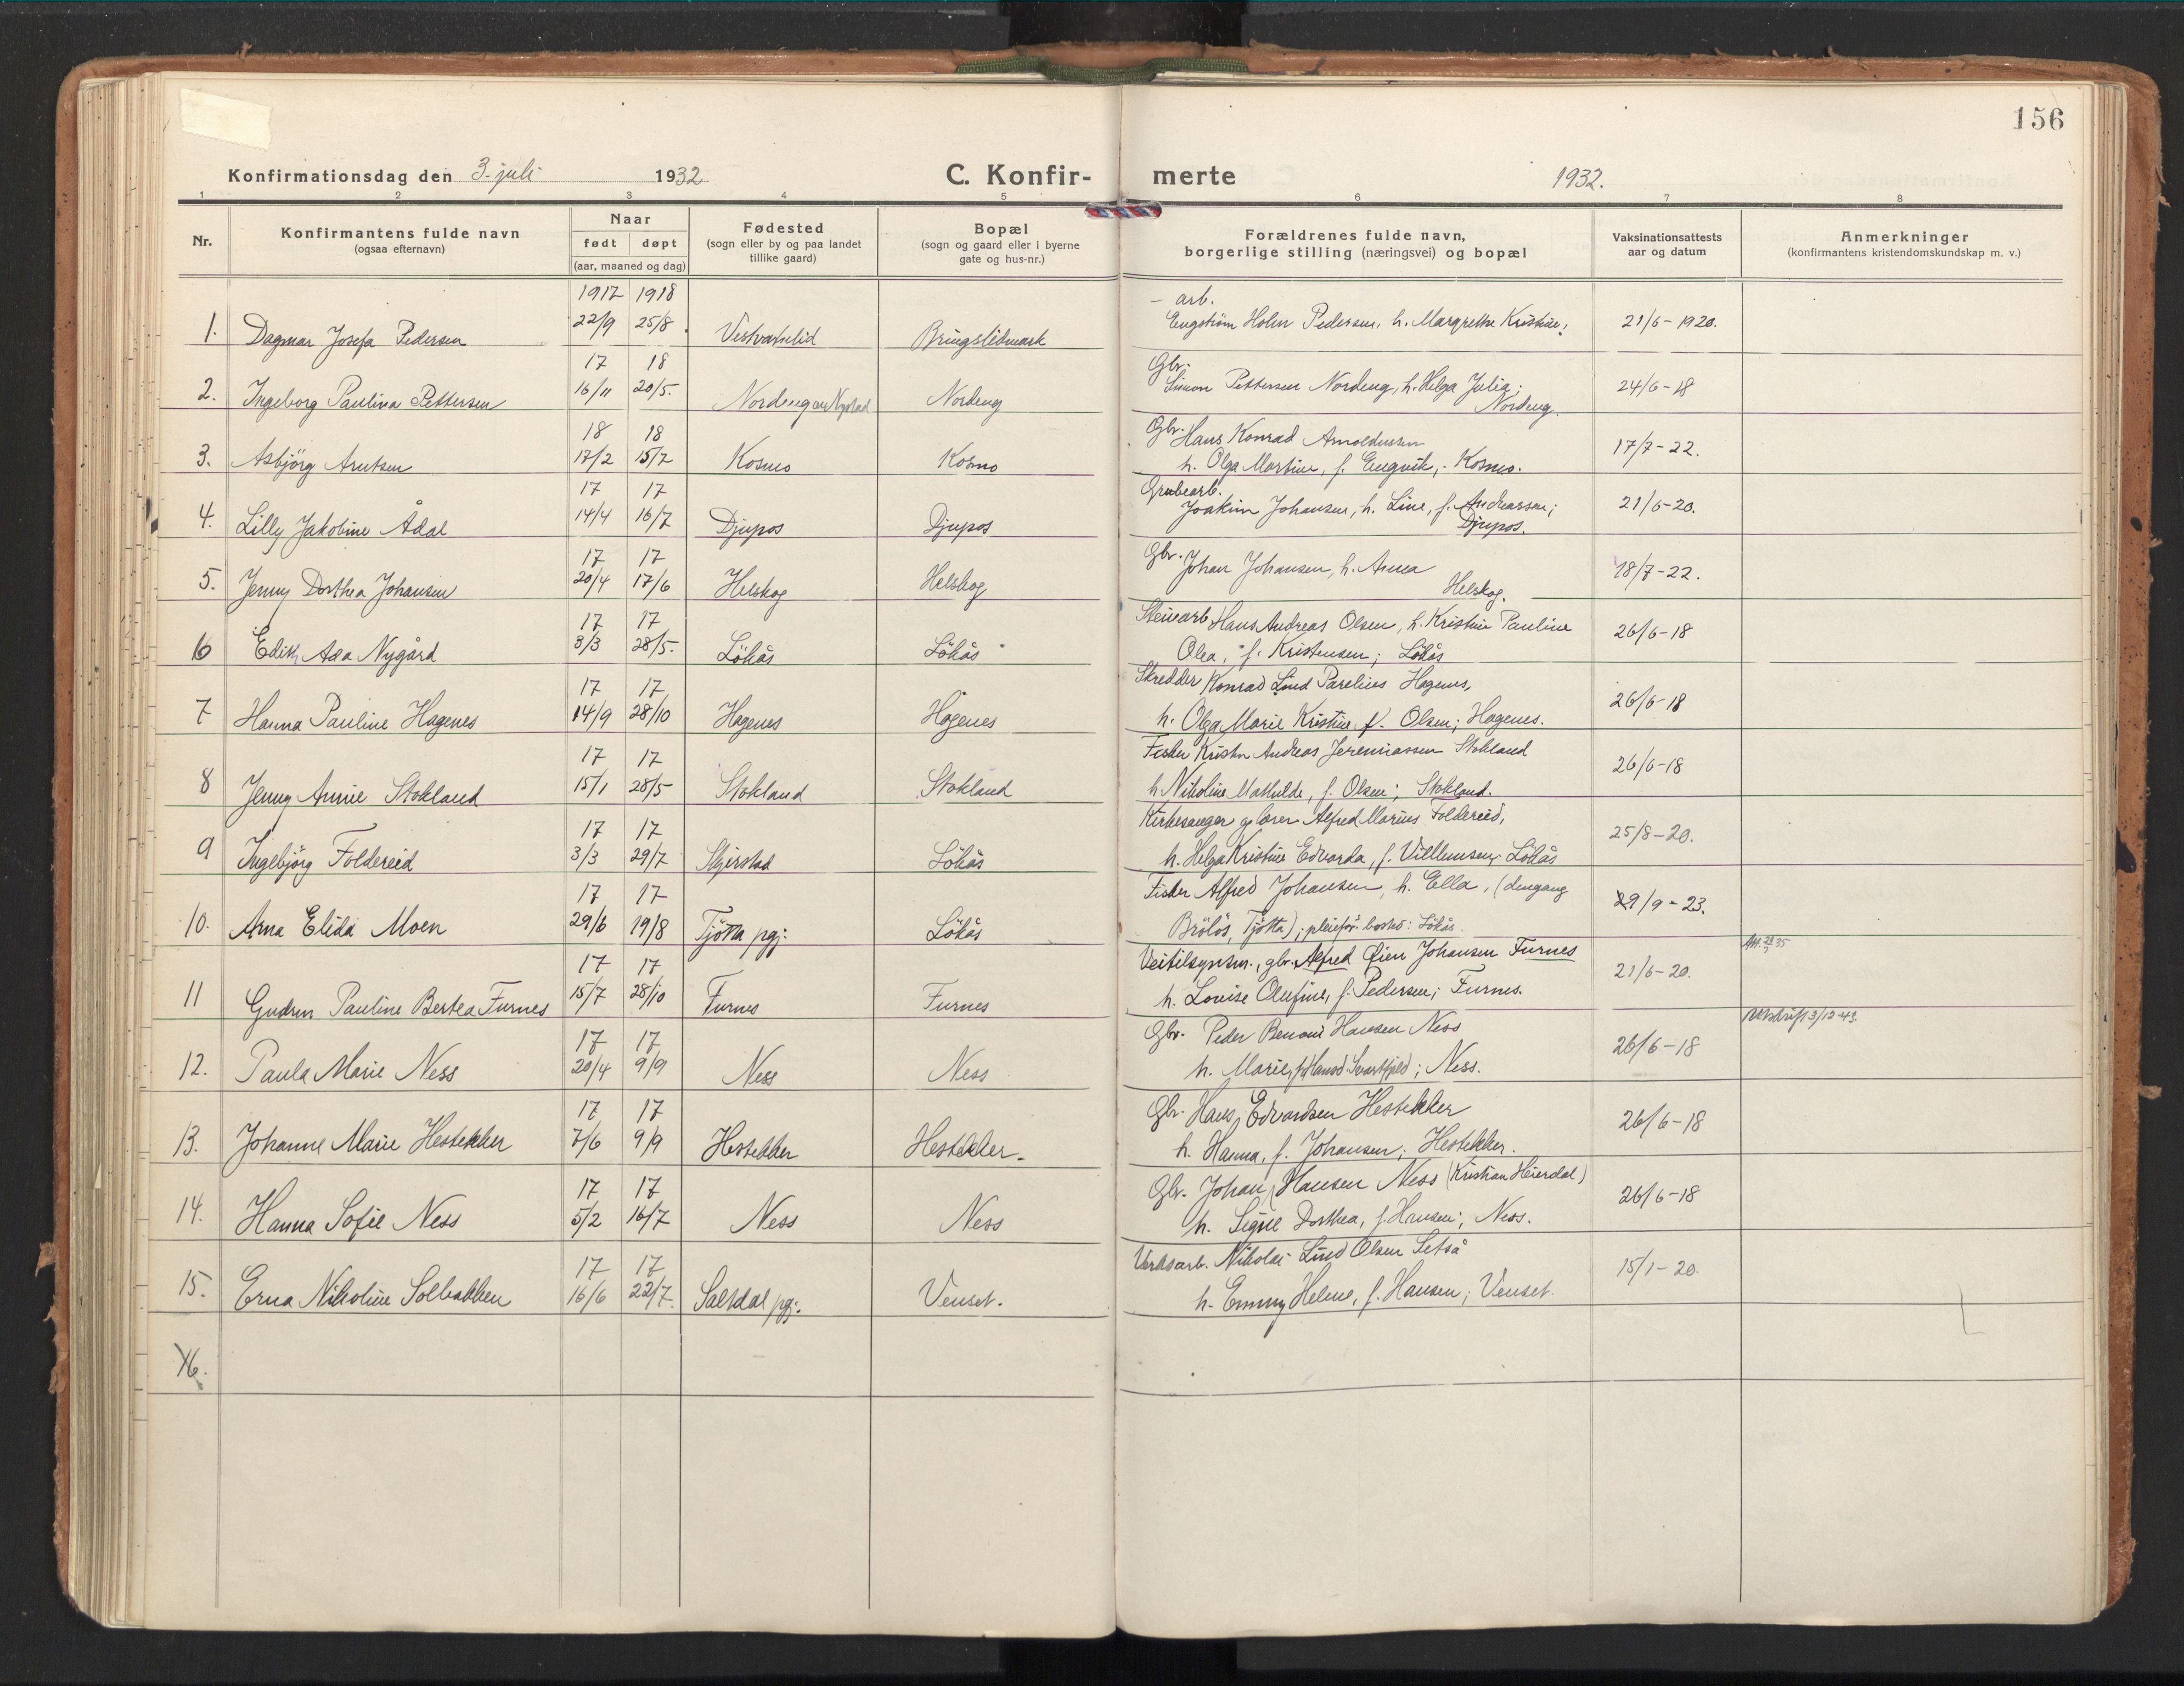 156
Konfirmationsdag den 3. juli 1932 C. Konfir- merte 1932.
1 2 3 4 5 6 7 8
Nr.
Konfirmantens fulde navn
(ogsaa efternavn)
Naar
født døpt
(aar, maaned og dag)
Fødested
(sogn eller by og paa landet
tillike gaard)
Bopæl
(sogn og gaard eller i byerne
gate og hus-nr.)
Forældrenes fulde navn,
borgerlige stilling (næringsvei) og bopæl
Vaksinationsattests
aar og datum
Anmerkninger
(konfirmantens kristendomskundskap m. v.)
1917 1918 - arb.
1. Dagmar Josefa Pedersen 22/9 25/8 Vestvatnlid Bringslidmark Engstrøm Holm Pedersen, h. Margrethe Kristine; 21/6-1920.
17 18 Gbr.
2. Ingeborg Paulina Pettersen 16/11 20/5. Nordeng Nordeng Simon Pettersen Nordeng, h. Helga Julia; 24/6-18
Nordeng.
18 18 Gbr. Hans Konrad Arnoldussen
3. Asbjörg Arntsen 17/2 15/7 Kosmo Kosmo h. Olga Martine, f. Engvik, - Kosmo. 17/7-22.
17 17 Grubearb.
4. Lilly Jakobine Ådal 14/4 16/7 Djupos Djupos Joakim Johansen, h. Line, f. Andreassen; 21/6-20.
Djupos.
17 17 Gbr. Johan Johansen, h. Anna
5. Jenny Dorthea Johansen 20/4 17/6 Helskog Helskog Helskog. 18/7-22.
17 17 Stenarb Hans Andreas Olsen, h. Kristine Pauline
6 Edith Asa Nygård 3/3 28/5. Lökås Lökås Olea, f. Kristensen; Lökås 26/6-18
17 17 Skredder Konrad Lind Parelius Hagenes,
7 Hanna Pauline Hagenes 14/9 28/10 Hagenes Hagenes h. Olga Marie Kristine f. Olsen; Hagenes. 26/6-18
17 17 Fisker Kristen Andreas Jeremiassen Stokland
8 Jenny Annie Stokland 15/1 28/5 Stokland Stokland h. Nikoline Mathilde, f. Olsen; Stokland. 26/6-18
17 17 Kirkesanger og lærer Alfred Marius Foldereid,
9 Ingebjörg Foldereid 3/3 29/7 Skjerstad Lökås h. Helga Kristine Edvarda, f. Villumsen; Lökås 25/8-20.
17 17 Fisker Alfred Johansen, h. Ella, (dengang
10. Arna Elida Moen 29/6 19/8 Tjötta pgj: Lökås Brölös, Tjötta); pleiefor. bosted: Lökås. 29/9-23.
17 17 Veitilsynsm., gbr. Alfred Öien Johansen Furnes
11 Gudrun Pauline Bertea Furnes 15/7 28/10 Furnes Furnes h. Lovise Olufine, f. Pedersen; Furnes. 21/6-20.
17 17 Gbr. Peder Benoni Hansen Ness Utskrift 3/12-43.
12. Paula Marie Ness 20/4 9/9 Ness Ness h. Marie, Svartfjeld; Ness. 26/6-18
17 17 Gbr. Hans Edvardsen Hestekker
13. Johanne Marie Hestekker 7/6 9/9 Hestekker Hestekker. h. Hanna, f. Johansen; Hestekker. 26/6-18
17 17 Gbr. Johan Hansen Ness (Kristian Heierdal)
14. Hanna Sofie Ness 5/2 16/7 Ness Ness h. Signe Dorthea, f. Hansen; Ness. 26/6-18
17 17 Verksarb. Nikolai Lind Olsen Setså
15. Erna Nikoline Solbakken 16/6 22/7. Saltdal pgj: Venset. h. Emmy Helene, f. Hansen; Venset. 15/1-20
16.